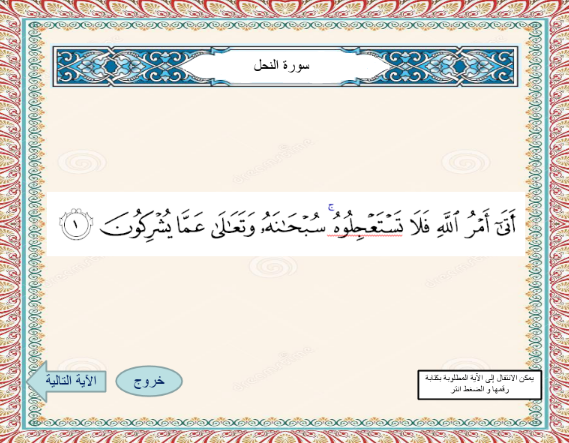 سورة النحل
أَتَىٰٓ أَمۡرُ ٱللَّهِ فَلَا تَسۡتَعۡجِلُوهُۚ سُبۡحَٰنَهُۥ وَتَعَٰلَىٰ عَمَّا يُشۡرِكُونَ ١
يمكن الانتقال إلى الآية المطلوبة بكتابة
رقمها و الضغط انتر
خروج
الآية التالية